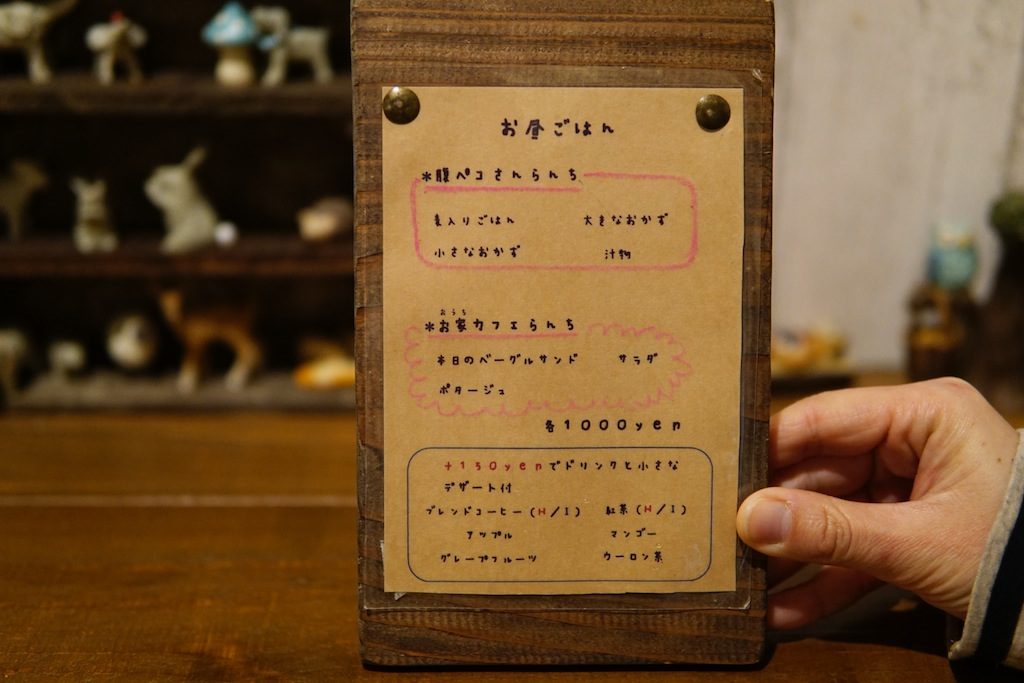 お昼ごはん
*腹ペコさんらんち
麦入りごはん 大きなおかず
小さなおかず 汁物
おうち
*お家カフェらんち
本日のベーグルサンド サラダ
ポタージュ
各1000yen
+150yenでドリンクと小さな
デザート付
ブレンドコーヒー(H/I) 紅茶(H/I)
アップル マンゴー
グレープフルーツ ウーロン茶